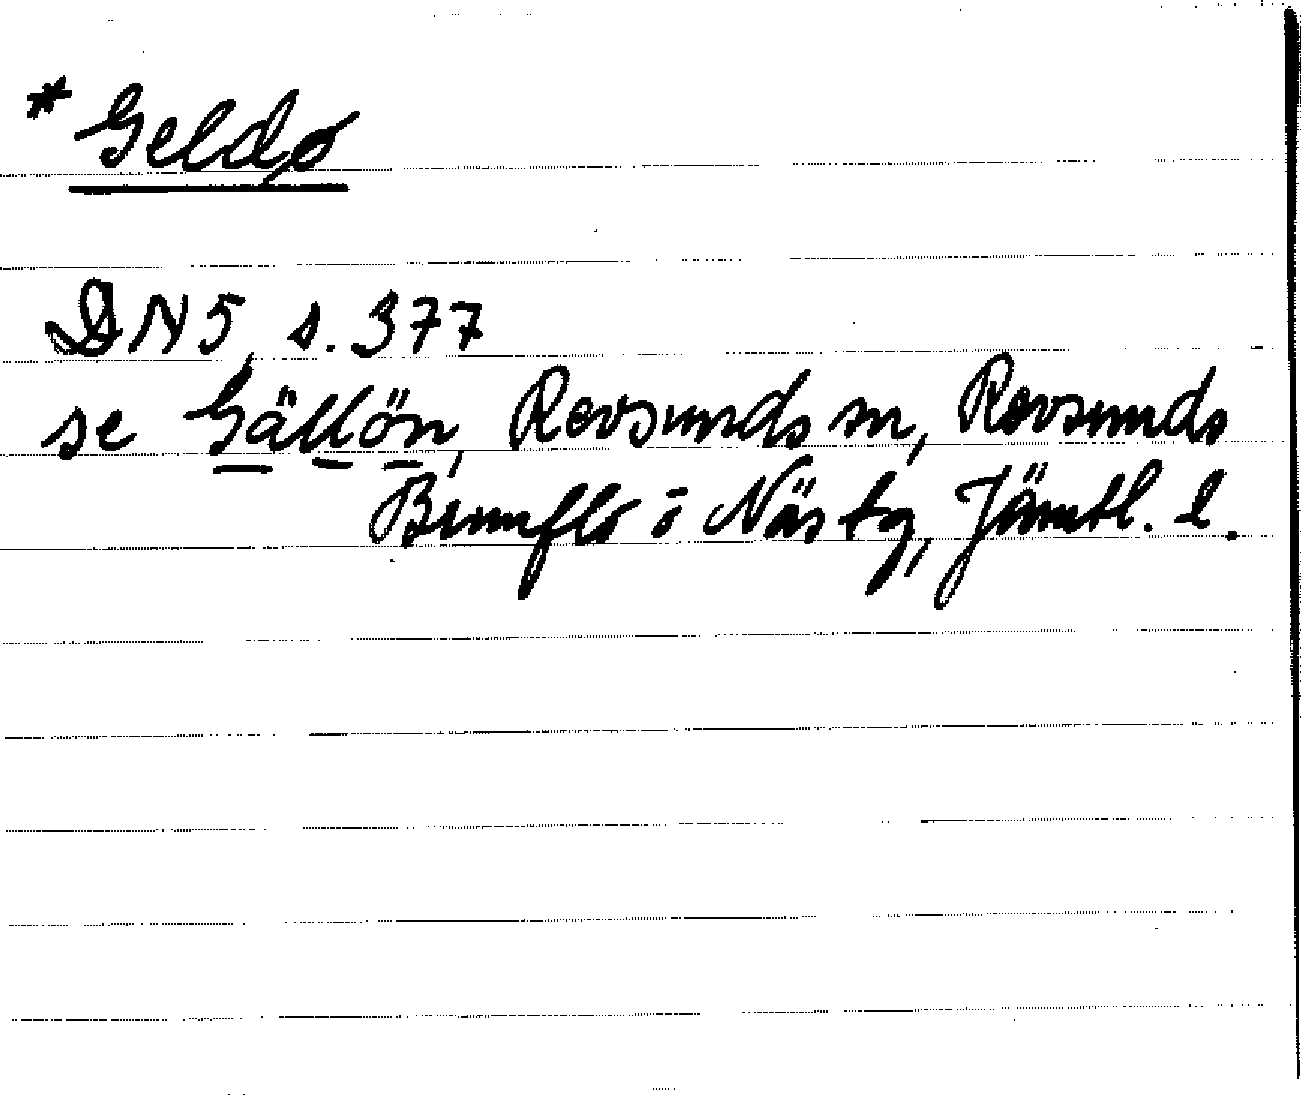 * Geldø
DN 5, s. 377
se Gällön, Revsunds sn, Revsunds
Brunflo o Näs tg, Jämtl. l.